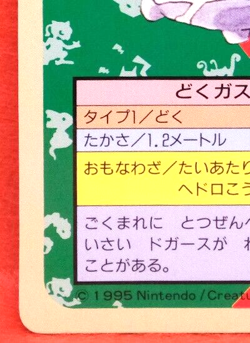 どくガス
タイプ1/どく
たかさ/1.2メートル
おもなわざ/たいあたり
ヘドロこう
ごくまれに とつぜんへ
いさい ドガースが
ことがある。
© 1995 Nintendo/Creatur